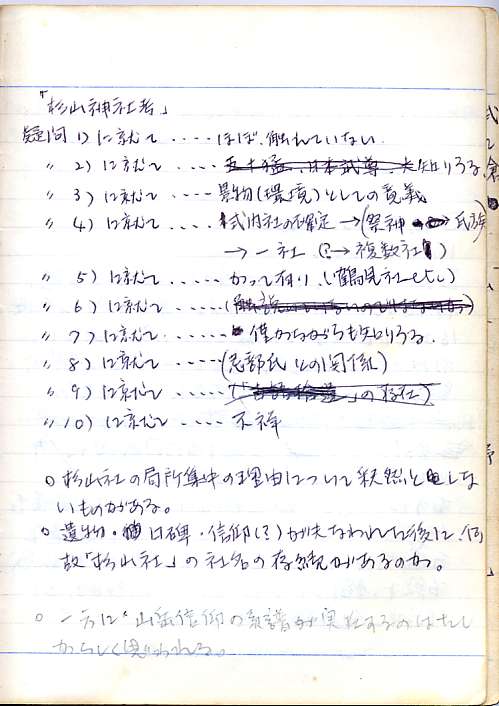 「杉山神社考」
疑問 1) に就て ‥‥ ほぼ、触れていない.
〃 2) に就て ‥‥ 五十猛、日本武尊、 知りうる
〃 3) に就て ‥‥ 景物(環境)としての意義
〃 4) に就て ‥‥ 式内社の確定 →(祭神 氏族
→ 一社 (?→ 複数社)
〃 5) に就て ‥‥‥ かって有り、(鶴見社etc)
〃 6) に就て ‥‥‥
〃 7) に就て ‥‥‥ 僅かながらも知りうる.
〃 8) に就て ‥‥‥ (忌部氏との関係)
〃 9) に就て ‥‥‥ (「古語拾遺」の存在)
〃 10) に就て ‥‥‥ 不祥
○ 杉山社の局所集中の理由について釈然としな
いものがある。
○ 遺物・口碑・信仰(?)が失なわれた後に、何
故「杉山社」の社名の存続があるのか。
○ 一方に、山岳信仰の系譜が実在するのはたし
からしく思われる。